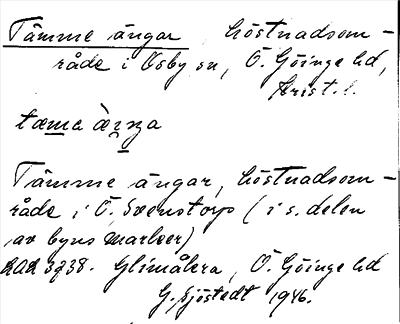 Tämme ängar, höstnadsom-
råde i Osby sn, Ö. Göinge hd,
Krist. l.
tæma æ̀ŋa
Tämme ängar, höstnadsom-
råde i Ö. Svenstorp (i s. delen
av byns marker)
RAÄ 3938. Glimåkra, Ö. Göinge hd
G. Sjöstedt 1946.